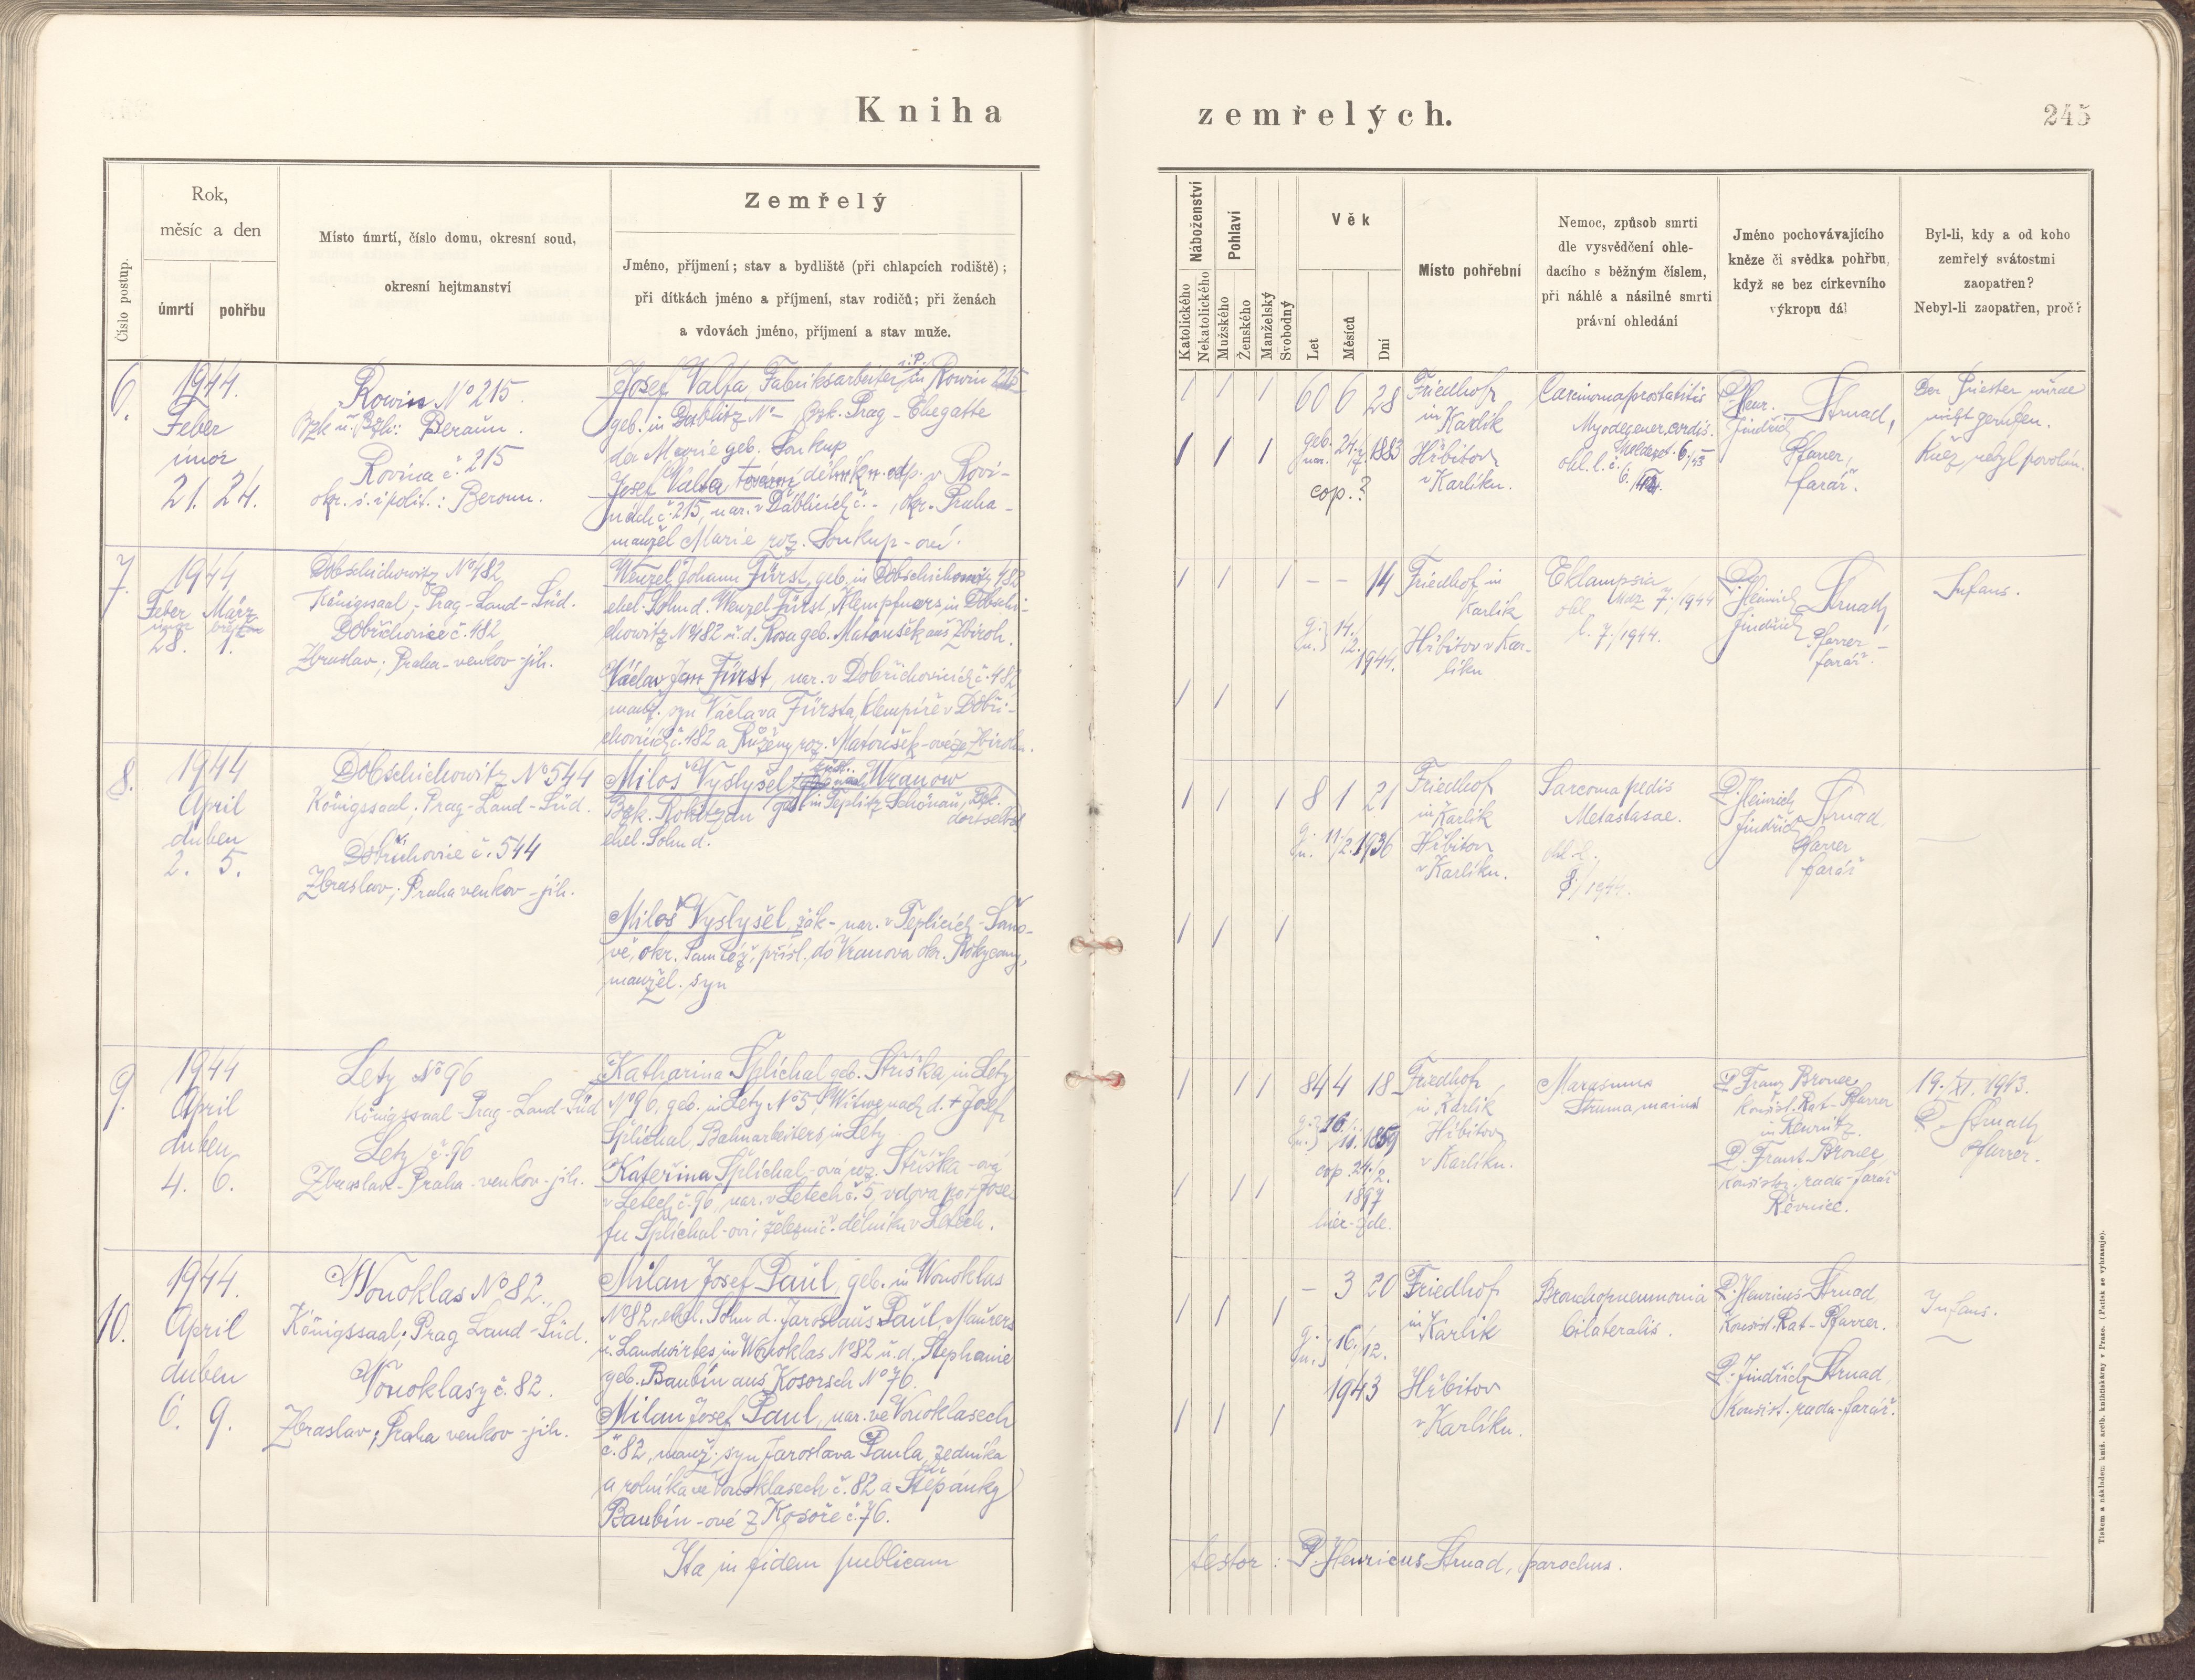 Kniha
zemřelých.
245
Číslo postup.
Rok,
měsíc a den
úmrtí
pohřbu
Místo úmrtí, číslo domu, okresní soud,
okresní hejtmanství
Zemřelý
Jméno, příjmení; stav a bydliště (při chlapcích rodiště);
při dítkách jméno a příjmení, stav rodičů; při ženách
a vdovách jméno, příjmení a stav muže.
Náboženství
Katolického
Nekatolického
Pohlaví
Mužského
Ženského
Manželský
Svobodný
Věk
Let
Měsíců
Dní
Místo pohřební
Nemoc, způsob smrti
dle vysvědčení ohle-
dacího s běžným číslem,
při náhlé a násilné smrti
právní ohledání
Jméno pochovávajícího
kněze či svědka pohřbu,
když se bez církevního
výkropu dál
Byl-li, kdy a od koho
zemřelý svátostmi
zaopatřen?
Nebyl-li zaopatřen, proč?
6.
1944.
Feber
únor
21. 24.
Rowin No 215.
Bzk u. Bzh: Beraun.
Rovina č. 215
okr. s. i polit.: Beroun.
Josef Valta, Fabriksarbeiter i.P. in Rowin 215
geb. in No - Bzk. Prag - Ehegatte
der Marie geb. Soukup
Josef Valta tovární dělník n. odp. v Rovi-
nách č. 215, nar. v Ďáblicích č. -, okr. Praha -
manžel Marie roz. Soukup-ové.
/ / / 60 6 28
geb. nar. 24. 1883
cop. ?
Friedhof
in Karlík
Hřbitov
v Karlíku.
Carcinoma prostatitis
Myodegener. cordis.
ohl. l. č.
P. Henr. Strnad,
Jindřich
Pfarrer,
farář.
Der Priester wurde
nicht gerufen.
Kněz nebyl povolán.
7.
1944
Feber März
únor březen
28. 1.
Dobschichowitz No 482
Königssaal - Prag-Land-Süd.
Dobřichovice č. 482
Zbraslav; Praha-venkov-jih.
Wenzel Johann Fürst, geb. in Dobschichowitz 482
ehel. Sohn d. Wenzel Fürst, Klempfners in Dobschi-
chowitz No 482 u. d. Rosa geb. Matoušek aus Zbiroh.
Václav Jan Fürst, nar. v Dobřichovicích č. 482
manž. syn Václava Fürsta, klempíře v Dobři-
chovicích č. 182 a Růženy roz. Matoušek-ové ze Zbirohu.
/ / / - - 14
g. n. } 14. /2. 1944.
Friedhof in
Karlík
Hřbitov v Kar-
líku
Eklampsia
ohl. Mdz 7./1944
l. 7./1944.
P. Heinrich Strnad,
Jindřich
Pfarrer -
farář.
Infans.
8.
1944
April
duben
2. 5.
Dobschichowitz No 544
Königssaal; Prag-Land-Süd.
Dobřichovice č. 544
Zbraslav; Praha venkov-jih.
Miloš Vyslyšel, zust. Wranow
Bzk. Rokitzan geb. in Teplitz Schönau, Bzk. dortselbst
ehel. Sohn d.
Miloš Vyslyšel, žák - nar. v Teplicích-Šano-
vě, okr. tamtéž, přísl. do Vranova okr. Rokycany,
manžel. syn
/ / / 8 1 21
g. n. 11./2. 1936
Friedhof
in Karlík
Hřbitov
v Karlíku.
Sarcoma pedis
Metastasae.
ohl. l.
8./1944.
P. Heinrich Strnad
Jindřich
Pfarrer
farář
9.
1944
April
duben
4. 6.
Lety No 96
Königssaal-Prag-Land-Süd
Lety č. 96
Zbraslav-Praha-venkov-jih.
Katharina Šplíchal geb. Stříška, in Lety
No 96, geb. in Lety No 5, Witwe nach d. + Josef
Šplíchal, Bahnarbeiters, in Lety
Kateřina Šplíchal-ová roz. Stříška-ová
v Letech č. 96, nar. v Letech č. 5, vdova po + Jose-
fu Šplíchal-ovi, železnič. dělníku v Letech.
/ / / 84 4 18
g. n. } 16. /11. 1859
cop. 24./2.
1897
hier - zde.
Friedhof
in Karlík
Hřbitov
v Karlíku.
Marasmus
Struma
P. Franz Bronec
Konsist. Rat - Pfarrer
in Rewnitz.
P. Frant. Bronec
konsistor. rada - farář
Řevnice.
19./XI. 1943.
P. Strnad,
Pfarrer.
10.
1944.
April
duben
6. 9.
Wonoklas No 82.
Königssaal; Prag Land-Süd.
Vonoklasy č. 82.
Zbraslav; Praha venkov-jih.
Milan Josef Paul, geb. in Wonoklas
No 82, ehel. Sohn d. Jaroslaus Paul, Maurers
u. Landwirtes, in Wonoklas No 82 u. d. Stephanie
geb. Baubín aus Kosorsch No 76.
Milan Josef Paul, nar. ve Vonoklasech
č. 82, manž. syn Jaroslava Paula, zedníka
a rolníka ve Vonoklasech č. 82 a Štěpánky
Baubín-ové z Kosoře č. 76.
/ / / - 3 20
g. n. } 16./12.
1943
Friedhof
in
Karlík
Hřbitov
v Karlíku.
Bronchopneumonia
bilateralis.
P. Henricus Strnad,
Konsist. Rat - Pfarrer.
P. Jindřich Strnad,
Konsist. rada - farář.
Infans.
Ita in fidem publicam
testor: P. Henricus Strnad, parochus.
Tiskem a nákladem kníž. arcib. knihtiskárny v Praze. (Patisk se vyhrazuje).